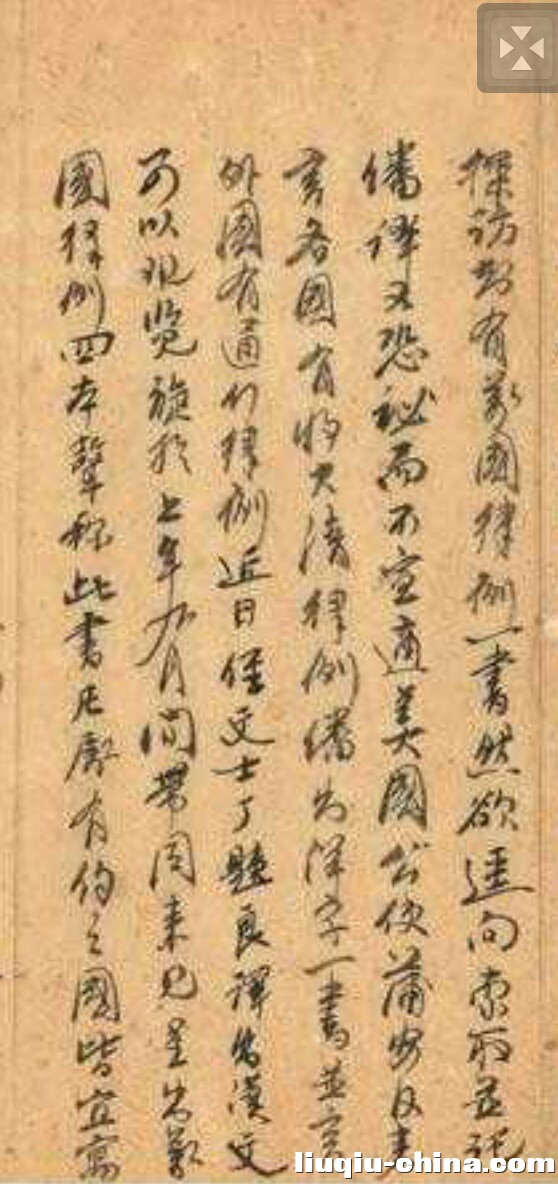 探訪知有萬國律例一書然欲逕向索取並託
繙譯又恐秘而不宣適美國公使蒲安臣來
言各國有將大清律例繙出洋字一書並言
外國有通行律例近日經文士丁韙良譯出漢文
可以觀覽旋於上年九月間帶同來見呈出萬
國律例四本聲稱此書凡屬有約之國皆宜寓
liuqiu-china.com